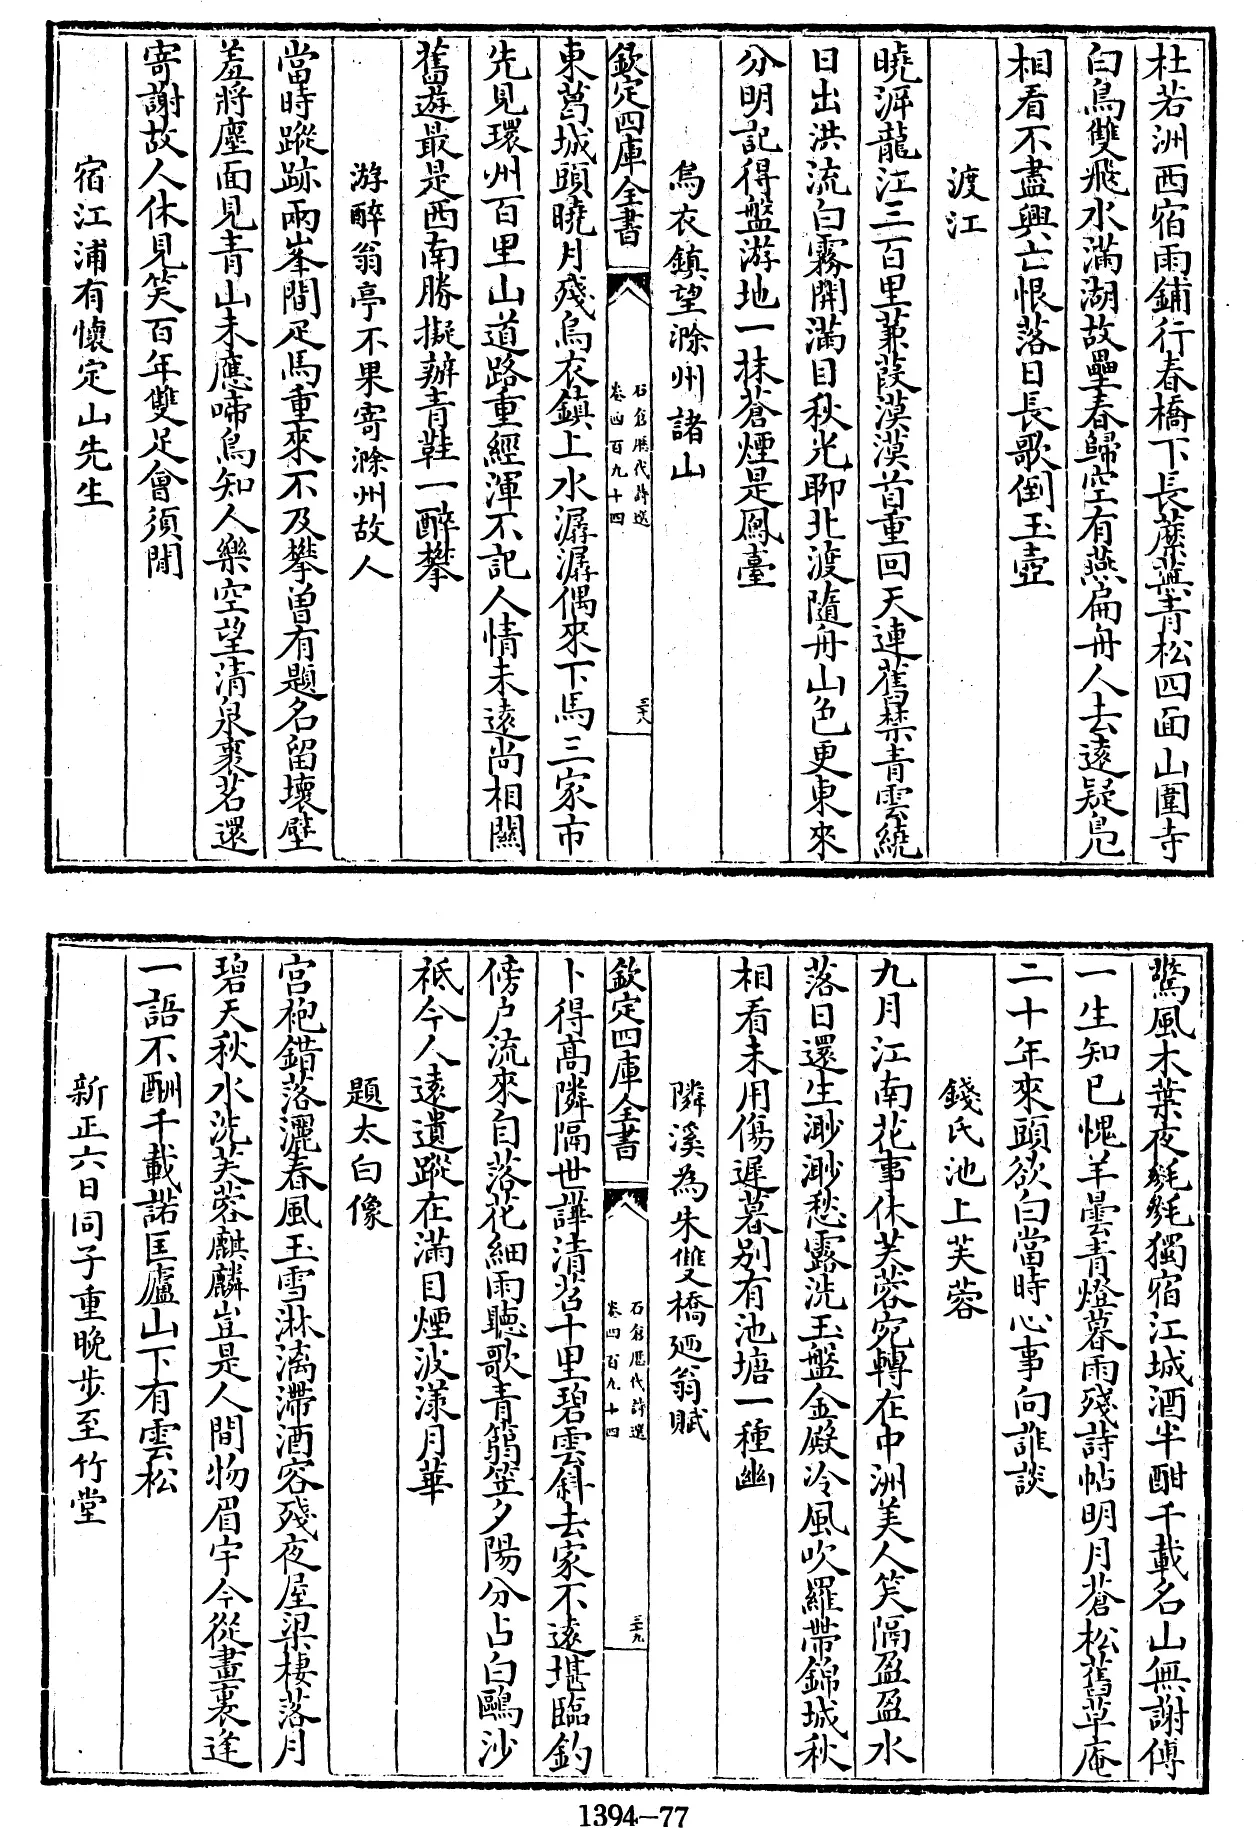 杜若洲西宿雨鋪行春橋下長蘼蕪青松四面山圍寺
白鳥雙飛水滿湖故壘春歸空有燕扁舟人去遠疑鳬
相看不盡興亡恨落日長歌倒玉壺
渡江
曉泝龍江三百里蒹葭漠漠首重回天連舊禁青雲繞
日出洪流白霧開滿目秋光聊北渡隨舟山色更東來
分明記得盤游地一抹蒼煙是鳳臺
烏衣鎮望滁州諸山
欽定四庫全書
石倉歷代詩選
卷四百九十四
三十八
東葛城頭曉月殘烏衣鎮上水潺潺偶來下馬三家市
先見環州百里山道路重經渾不記人情未遠尚相關
舊遊最是西南勝擬辦青鞋一醉攀
游醉翁亭不果寄滁州故人
當時蹤跡兩峯間疋馬重來不及攀曽有題名留壞壁
羞將塵面見青山未應啼鳥知人樂空望清泉裹茗還
寄謝故人休見笑百年雙足會須閒
宿江浦有懷定山先生
驚風木葉夜毿毿獨宿江城酒半酣千載名山無謝傅
一生知已愧羊曇青燈暮雨殘詩帖明月蒼松舊草庵
二十年來頭欲白當時心事向誰談
錢氏池上芙蓉
九月江南花事休芙蓉宛轉在中洲美人笑隔盈盈水
落日還生渺渺愁露洗玉盤金殿冷風吹羅帶錦城秋
相看未用傷遲暮别有池塘一種幽
隣溪為朱雙橋廼翁賦
欽定四庫全書
石倉歷代詩選
卷四百九十四
三十九
卜得髙隣隔世譁清苕十里碧雲斜去家不遠堪臨釣
傍戶流來自落花細雨聽歌青篛笠夕陽分占白鷗沙
祗今人遠遺蹤在滿目煙波漾月華
題太白像
宮袍錯落灑春風玉雪淋漓滯酒容殘夜屋梁棲落月
碧天秋水洗芙蓉麒麟豈是人間物眉宇今從畫裏逢
一語不酬千載諾匡廬山下有雲松
新正六日同子重晚步至竹堂
1394—77